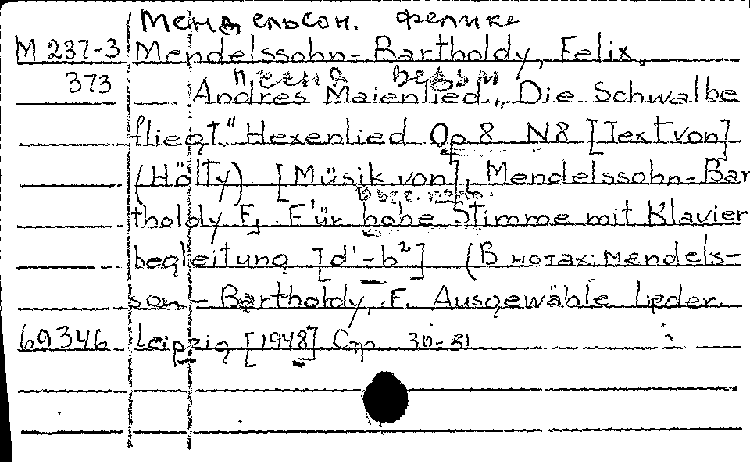 Мендельсон. Феликс
М 237-3 Mendelssohn-Bartholdy, Felix,
песня ведьм
373 Andres Maienlied „Die Schwalbe
fliegt" Hexenlied Op 8 N8 [Text von]
(Hölty) [Müsik von], Mendelssohn-Bar
tholdy F, F'ür hohe Stimme mit Klavier
begleitung [d'-b²] (В нотах: Mendels-
son-Bartholdy, F. Ausgewähle Lieder.
69346 Leipzig [1948] Стр 30-31